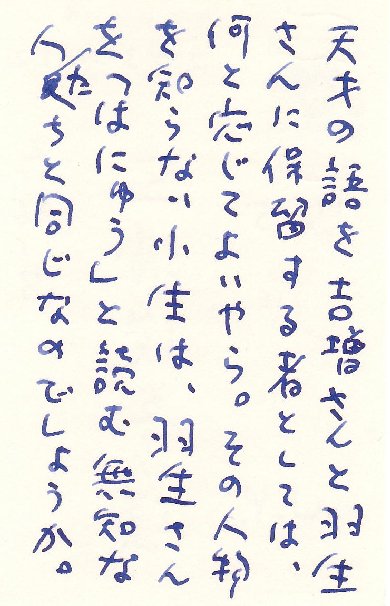 天才の語を吉増さんと羽生
さんに保留する者としては、
何と応じてよいやら。その人物
を知らない小生は、羽生さん
を「はにゅう」と読む無知な
人たちと同じなのでしょうか。